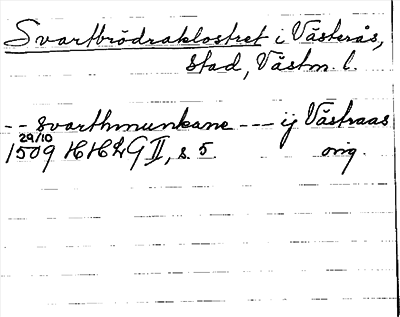 Svartbrödraklostret i Västerås,
stad, Västm. l.
-- svarthmunkane --- ij Västraas
29/10
1509 HHLG II, s. 5. orig.